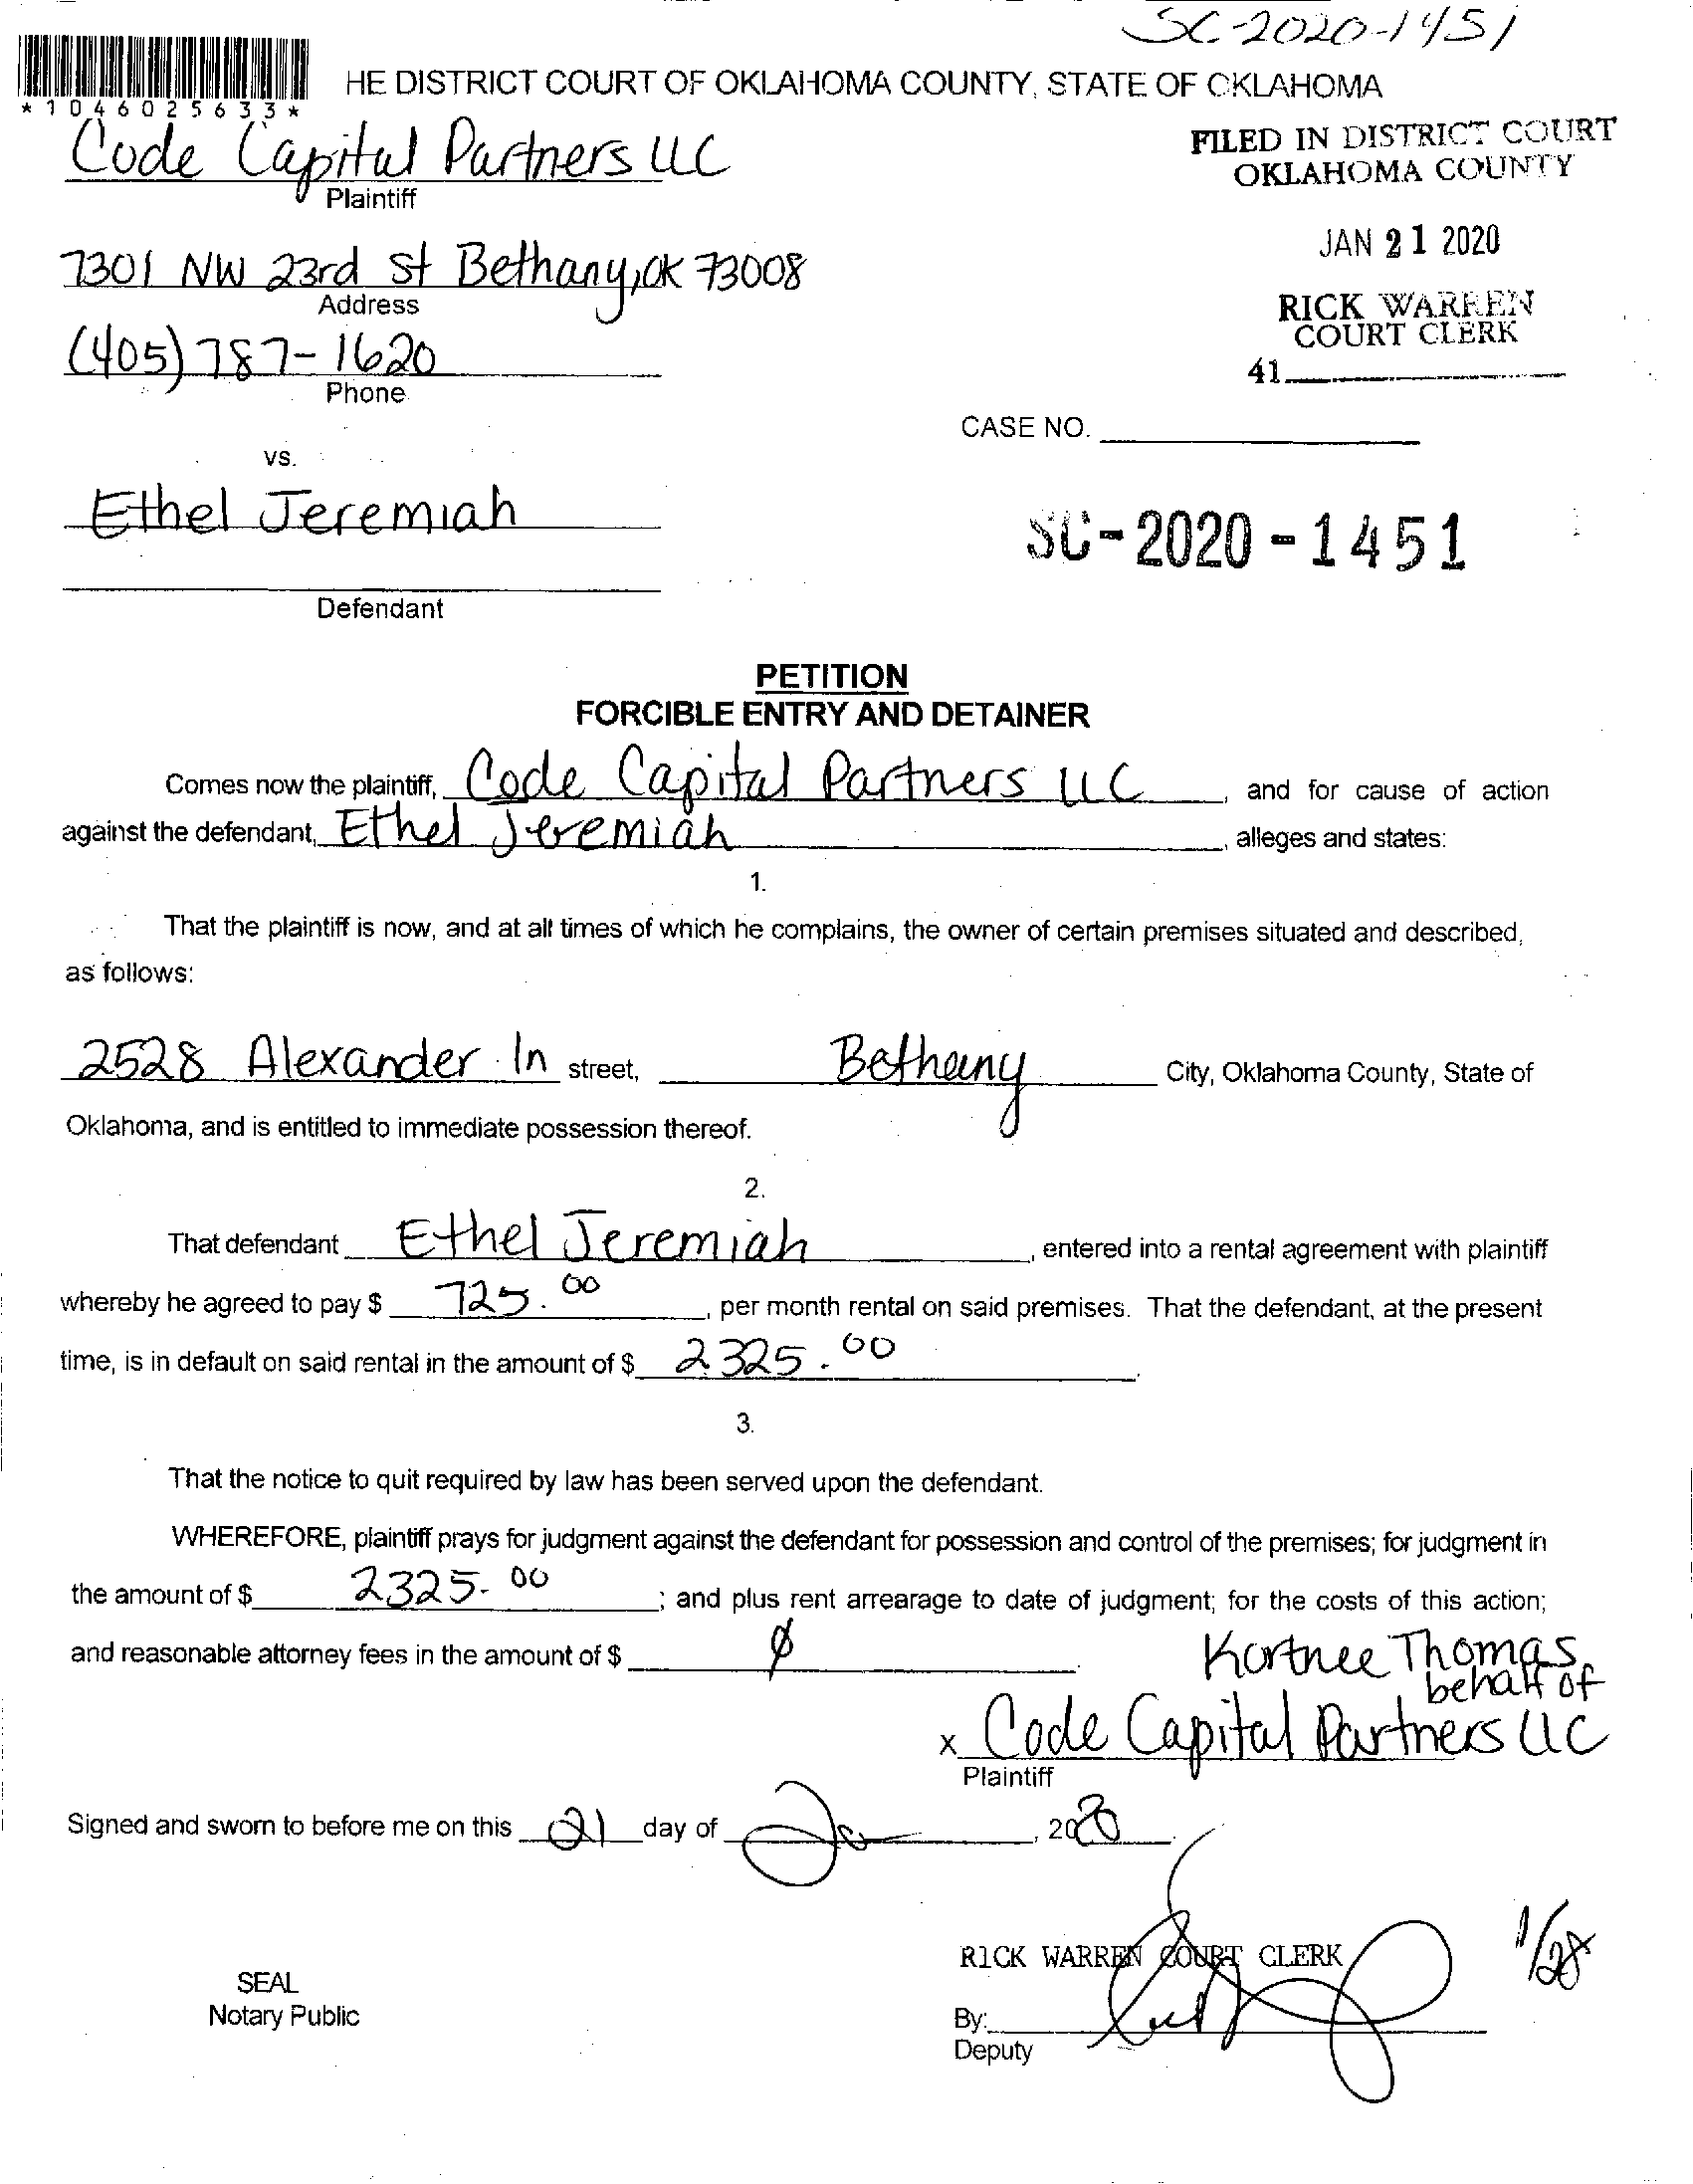 SC-2020-1451
HE DISTRICT COURT OF OKLAHOMA COUNTY, STATE OF OKLAHOMA
*1046025633*
Code Capital Partners LLC
Plaintiff
FILED IN DISTRICT COURT
OKLAHOMA COUNTY
JAN 21 2020
RICK WARREN
COURT CLERK
41
7301 NW 23rd St Bethany, OK 73008
Address
(405) 787-1620
Phone
CASE NO.
vs.
Ethel Jeremiah
SC-2020-1451
Defendant
PETITION
FORCIBLE ENTRY AND DETAINER
Comes now the plaintiff, Code Capital Partners LLC, and for cause of action
against the defendant, Ethel Jeremiah, alleges and states:
1.
That the plaintiff is now, and at all times of which he complains, the owner of certain premises situated and described,
as follows:
2528 Alexander ln street, Bethany City, Oklahoma County, State of
Oklahoma, and is entitled to immediate possession thereof.
2.
That defendant Ethel Jeremiah, entered into a rental agreement with plaintiff
whereby he agreed to pay $ 725.00, per month rental on said premises. That the defendant, at the present
time, is in default on said rental in the amount of $ 2325.00.
3.
That the notice to quit required by law has been served upon the defendant.
WHEREFORE, plaintiff prays for judgment against the defendant for possession and control of the premises; for judgment in
the amount of $ 2325.00; and plus rent arrearage to date of judgment; for the costs of this action;
and reasonable attorney fees in the amount of $ ∅.
Kortnee Thomas
behalf of
x Code Capital Partners LLC
Plaintiff
Signed and sworn to before me on this 21 day of Jan, 2020
RICK WARREN COURT CLERK
1/28
SEAL
Notary Public
By:
Deputy